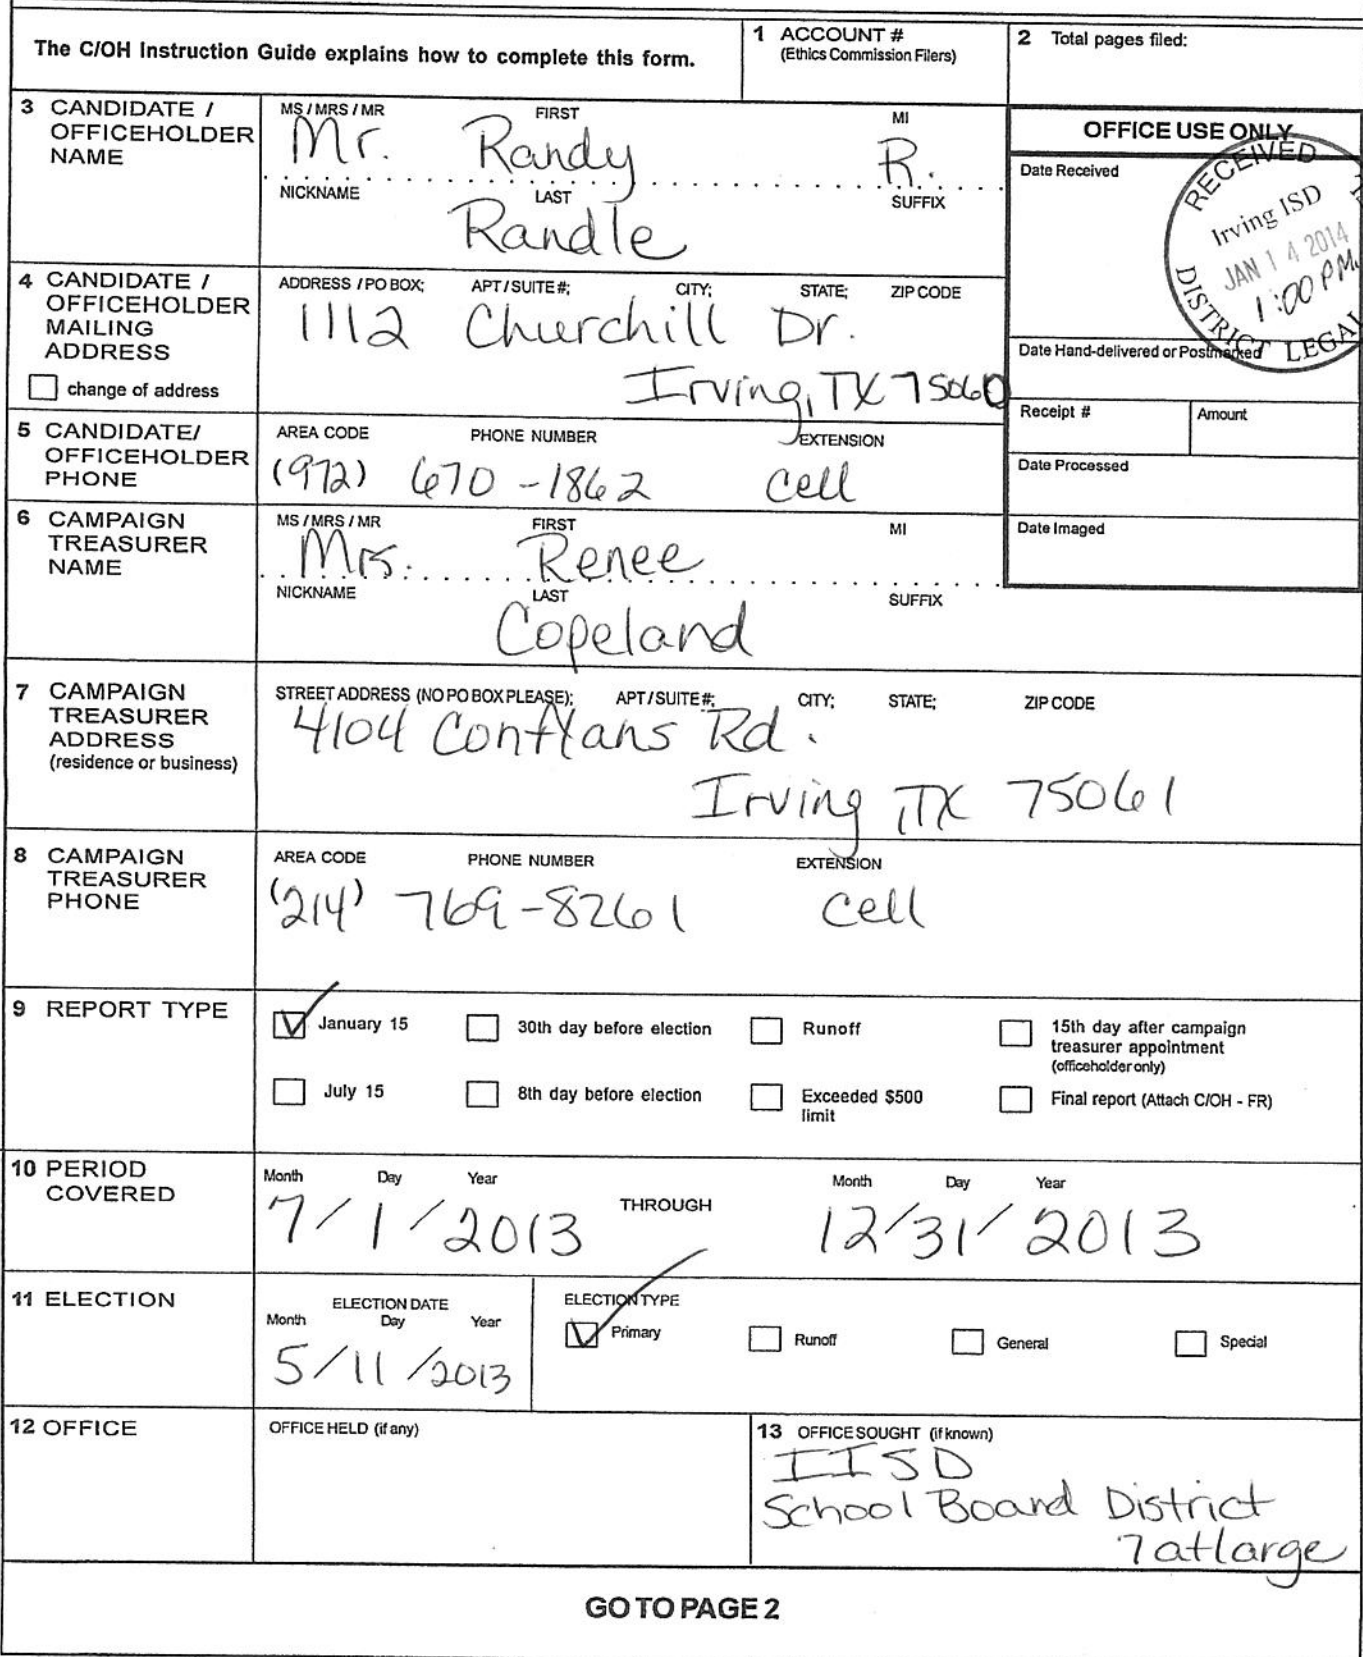 The C/OH Instruction Guide explains how to complete this form.
1 ACCOUNT #
(Ethics Commission Filers)
2 Total pages filed:
3 CANDIDATE / OFFICEHOLDER NAME
MS / MRS / MR FIRST MI
Mr. Randy R.
NICKNAME LAST SUFFIX
Randle
OFFICE USE ONLY
Date Received
RECEIVED
Irving ISD
JAN 14 2014
1:00 PM.
DISTRICT LEGAL
Date Hand-delivered or Postmarked
Receipt # Amount
Date Processed
Date Imaged
4 CANDIDATE / OFFICEHOLDER MAILING ADDRESS
change of address
ADDRESS / PO BOX; APT / SUITE #; CITY; STATE; ZIP CODE
1112 Churchill Dr.
Irving, TX 75060
5 CANDIDATE/ OFFICEHOLDER PHONE
AREA CODE PHONE NUMBER EXTENSION
(972) 670-1862 cell
6 CAMPAIGN TREASURER NAME
MS / MRS / MR FIRST MI
Mrs. Renee
NICKNAME LAST SUFFIX
Copeland
7 CAMPAIGN TREASURER ADDRESS
(residence or business)
STREET ADDRESS (NO PO BOX PLEASE); APT / SUITE #; CITY; STATE; ZIP CODE
4104 Conflans Rd.
Irving, TX 75061
8 CAMPAIGN TREASURER PHONE
AREA CODE PHONE NUMBER EXTENSION
(214) 769-8261 cell
9 REPORT TYPE
January 15 30th day before election Runoff 15th day after campaign treasurer appointment (officeholder only)
July 15 8th day before election Exceeded $500 limit Final report (Attach C/OH - FR)
10 PERIOD COVERED
Month Day Year Month Day Year
7/1/2013 THROUGH 12/31/2013
11 ELECTION
ELECTION DATE
Month Day Year
5/11/2013
ELECTION TYPE
Primary Runoff General Special
12 OFFICE
OFFICE HELD (if any)
13 OFFICE SOUGHT (if known)
IISD
School Board District
7 at large
GO TO PAGE 2